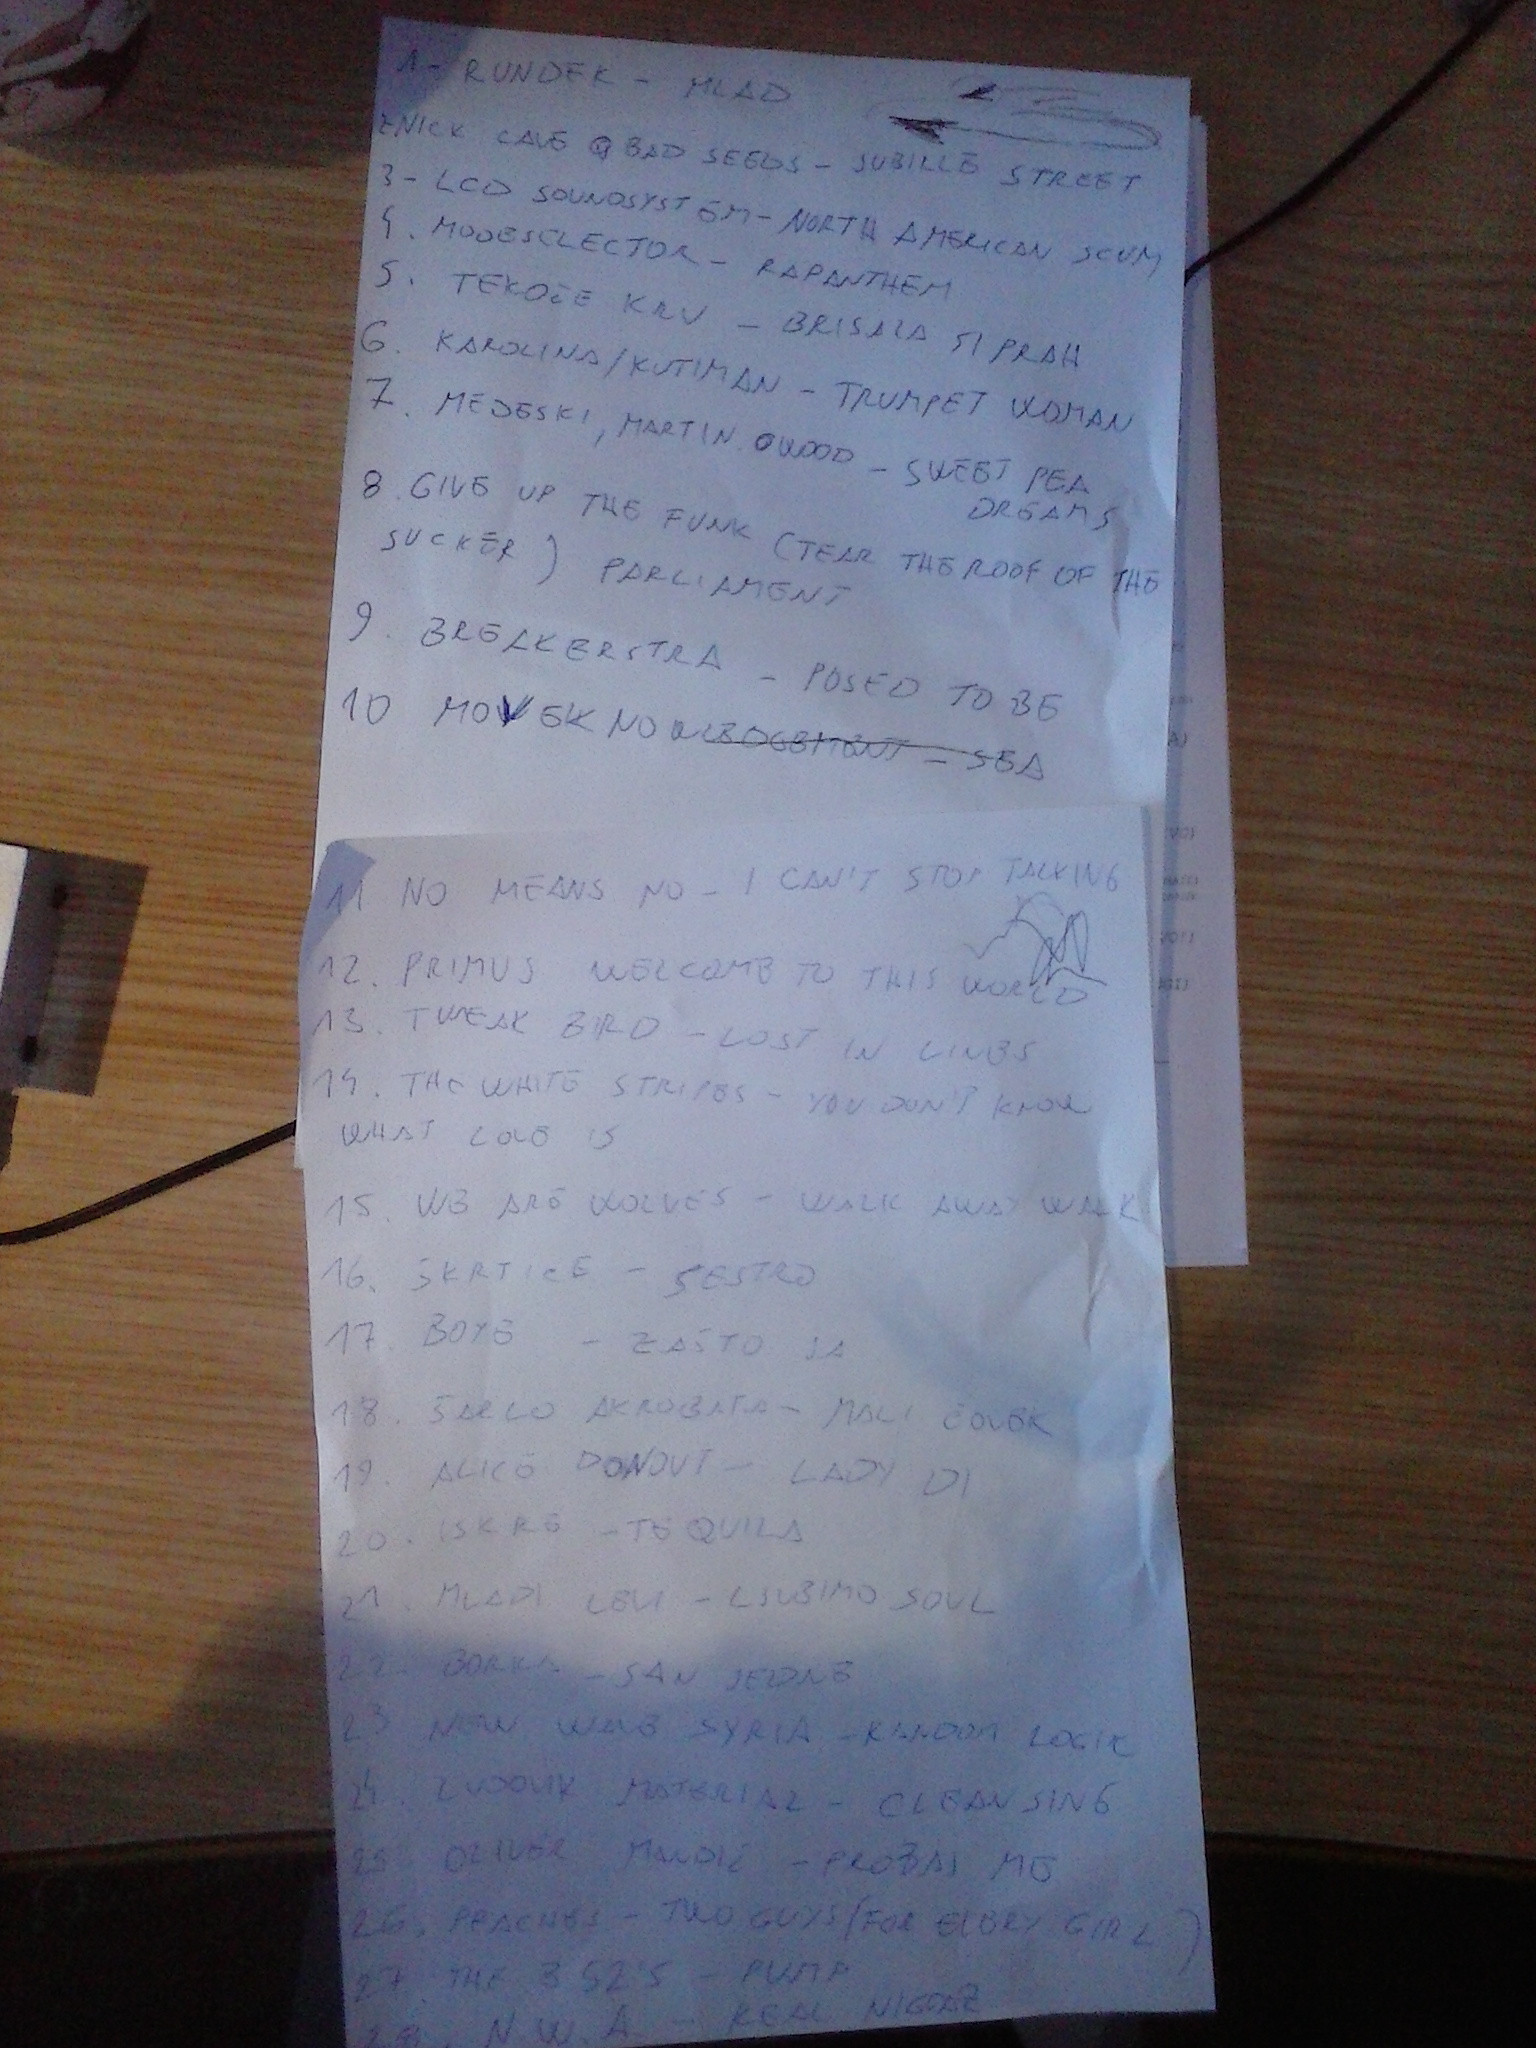 1- RUNDEK - MLAD
2 NICK CAVE & BAD SEEDS - JUBILLE STREET
3- LCD SOUNDSYSTEM - NORTH AMERICAN SCUM
4. MODESELECTOR - RAPANTHEM
5. TEKOČE KRV - BRISALA SI PRAH
6. KAROLINA/KUTIMAN - TRUMPET WOMAN
7. MEDESKI, MARTIN & WOOD - SWEET PEA
DREAMS
8. GIVE UP THE FUNK (TEAR THE ROOF OF THE
SUCKER) PARLIAMENT
9. BREAKERSTRA - POSED TO BE
10 MOVEKNOWLEDGEMENT - SEA
11 NO MEANS NO - I CAN'T STOP TALKING
12. PRIMUS WELCOME TO THIS WORLD
13. TWEAK BIRD - LOST IN LINES
14. THE WHITE STRIPES - YOU DON'T KNOW
WHAT LOVE IS
15. WE ARE WOLVES - WALK AWAY WALK
16. ŠKRTICE - SESTRO
17. BOYE - ZAŠTO JA
18. ŠARLO AKROBATA - MALI ČOVEK
19. ALICE DONOUT - LADY DI
20. ISKRE - TEQUILA
21. MLADI LEVI - LJUBIMO SOUL
22. - SAN JEDNE
23 NEW WAVE SYRIA - RANDOM LOGIK
24. ZVOČNIK MATERIAL - CLEANSING
25. OLIVER MANDIĆ - PROBAJ ME
26. PEACHES - TWO GUYS (FOR EVERY GIRL)
27. THE B 52'S - PUMP
28. N.W.A. - REAL NIGGAZ